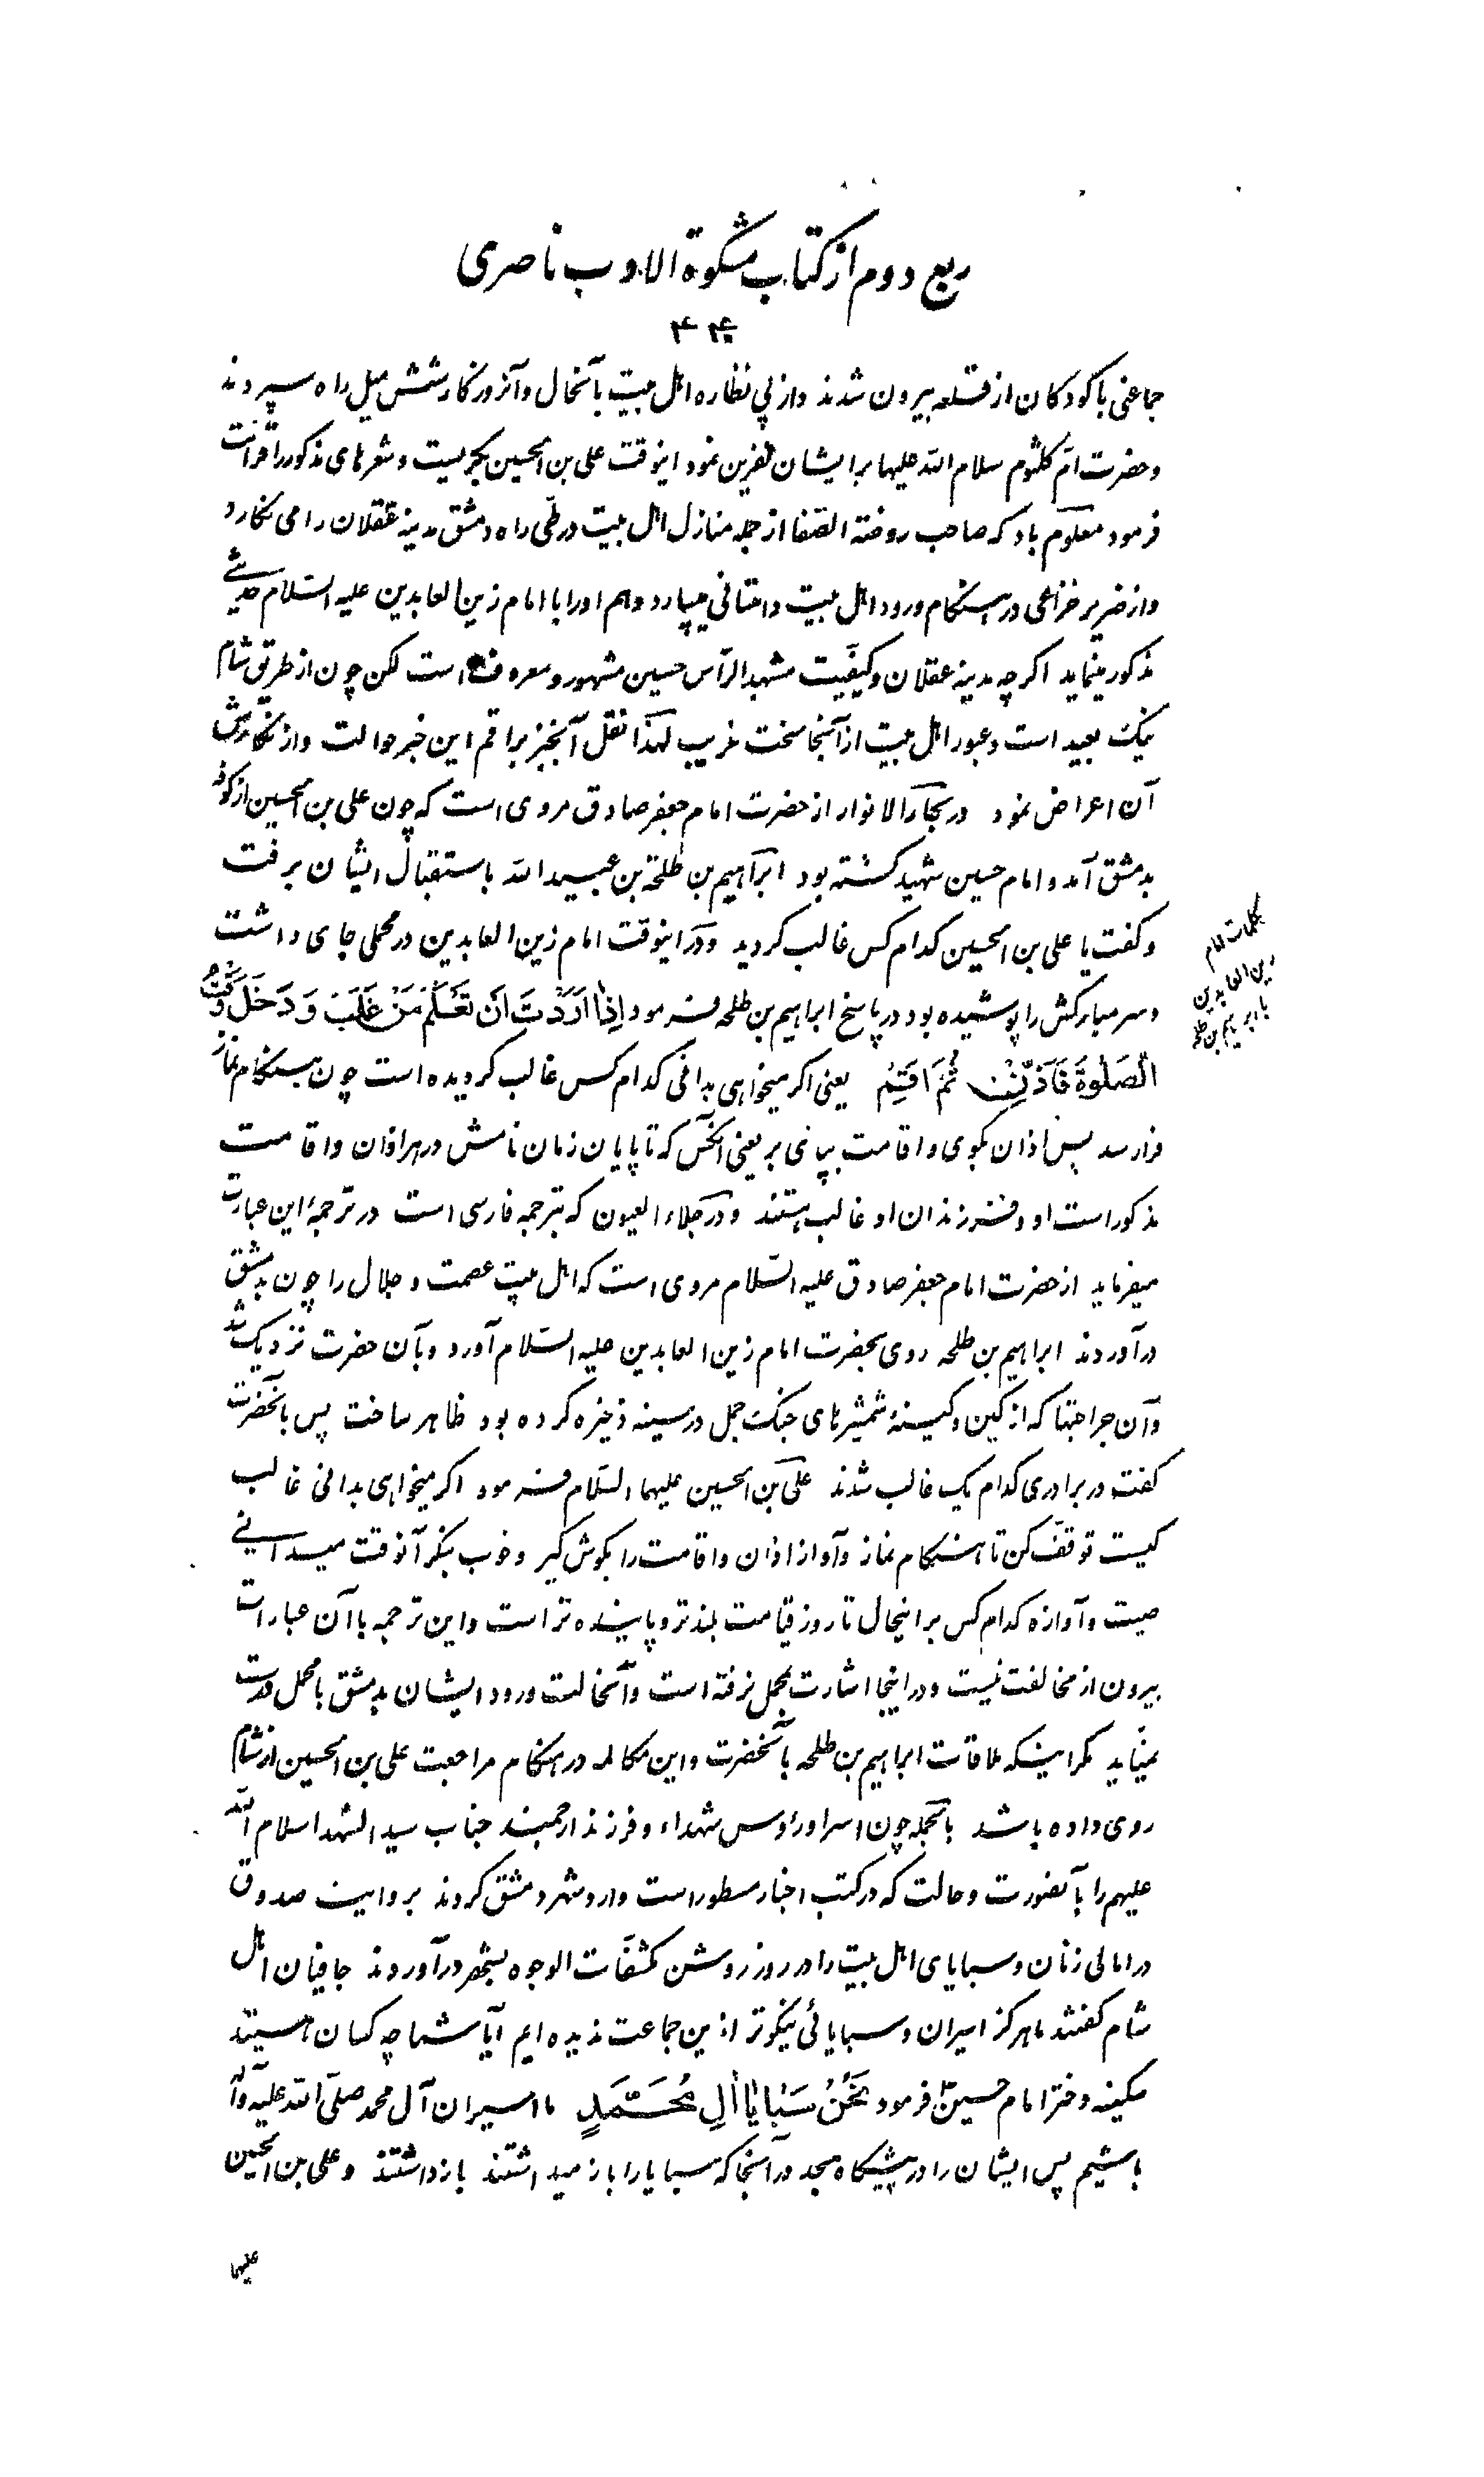 ربع دوم از کتاب مشکوة الادب ناصری
۴۴۰
جماعتی با کودکان از قلعه بیرون شدند و از پی نظاره اهل بیت بآنحال و آنروزکار شش میل راه سپردند
و حضرت امّ کلثوم سلام الله علیها بر ایشان نفرین نمود اینوقت علی بن الحسین بکریست و شعرهای مذکور را قرائت
فرمود معلوم باد که صاحب روضة الصّفا از جمله منازل اهل بیت در طیّ راه دمشق مدینه عسقلان را می نکارد
و از ضریر خزاعی در هنکام ورود اهل بیت داستانی میسپارد و هم او را با امام زین العابدین علیه السّلام حدیثی
مذکور مینماید اکر چه مدینه عسقلان و کیفیّت مشهد الرّأس حسین مشهور و معروف است لکن چون از طریق شام
نیک بعید است و عبور اهل بیت از آنجا سخت غریب لهذا نقل آنخبر براقم این خبر حوالت و از نکارش
آن اعراض نمود در بحار الانوار از حضرت امام جعفر صادق مروی است که چون علی بن الحسین از کوفه
بدمشق آمد و امام حسین شهید کشته بود ابراهیم بن طلحة بن عبید الله باستقبال ایشان برفت
و کفت یا علی بن الحسین کدام کس غالب کردید و در اینوقت امام زین العابدین در محملی جای داشت
و سر مبارکش را پوشیده بود در پاسخ ابراهیم بن طلحه فرمود اِذا اَرَدْتَ اَن تَعْلَمَ مَنْ غَلَبَ وَ دَخَلَ وَقْتُ
الصَّلوٰةِ فَاَذِّنْ ثُمَّ اَقِمْ یعنی اکر میخواهی بدانی کدام کس غالب کردیده است چون هنکام نماز
فرا رسد پس اذان بکوی و اقامت بپای بر یعنی آنکس که تا پایان زمان نامش در هر اذان و اقامت
مذکور است او و فرزندان او غالب هستند و در جلاء العیون که بترجمه فارسی است در ترجمهٔ این عبارت
میفرماید از حضرت امام جعفر صادق علیه السّلام مروی است که اهل بیت عصمت و جلال را چون بدمشق
در آوردند ابراهیم بن طلحه روی بحضرت امام زین العابدین علیه السّلام آورد و بآن حضرت نزدیک شد
و آن جراحتها که از کین و کینهٔ شمشیرهای جنک جمل در سینه ذخیره کرده بود ظاهر ساخت پس بآنحضرت
کفت در برادری کدام یک غالب شدند علی بن الحسین علیهما السّلام فرمود اکر میخواهی بدانی غالب
کیست توقف کن تا هنکام نماز و آواز اذان و اقامت را بکوش کیر و خوب بنکر آنوقت میدانی
صیت و آوازه کدام کس بر اینحال تا روز قیامت بلندتر و پاینده تر است و این ترجمه با آن عبارات
بیرون از مخالفت نیست و در اینجا اشارت بمحمل نرفته است و آنحالت ورود ایشان بدمشق با محمل درست
نمینماید مکر اینکه ملاقات ابراهیم بن طلحه بآنحضرت و این مکالمه در هنکام مراجعت علی بن الحسین از شام
روی داده باشد بالجمله چون اسرا و رؤس شهداء و فرزند ارجمند جناب سید الشهدا سلام الله
علیهم را بآنصورت و حالت که در کتب اخبار مسطور است وارد شهر دمشق کردند بروایت صدوق
در امالی زنان و سبایای اهل بیت را در روز روشن مکشفات الوجوه بشهر درآوردند جافیان اهل
شام کفتند ما هرکز اسیران و سبایائی نیکوتر ازین جماعت ندیده ایم آیا شما چه کسان هستید
سکینه دختر امام حسین فرمود نَحْنُ سَبٰایٰا اٰلِ مُحَمَّدٍ ما اسیران آل محمد صلّی الله علیه و آله
باشیم پس ایشان را در پیشکاه مسجد در آنجا که سبایا را باز میداشتند بازداشتند و علی بن الحسین
علیهما
کلمات امام
زین العابدین
با ابراهیم بن طلحه